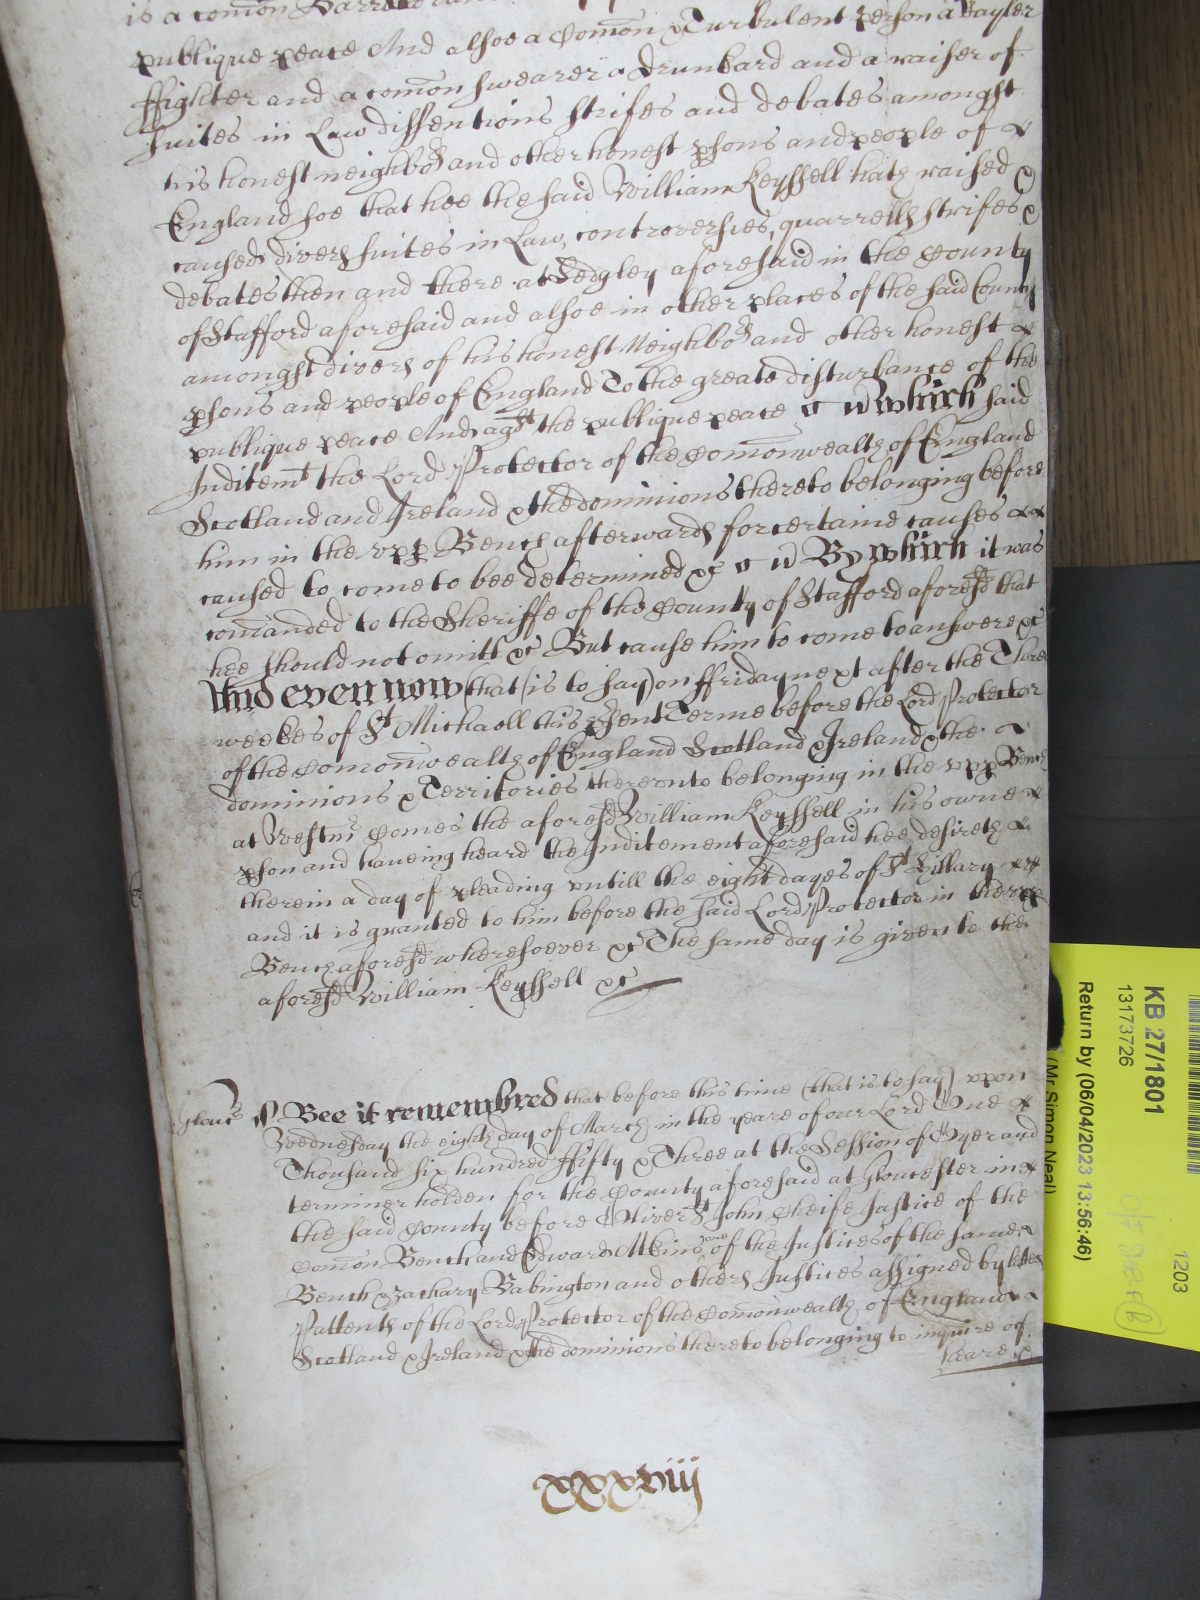 is a com̄on Barrator
publique peace And alsoe a Com̄on & Turbulent person a Rayler
ffighter and a com̄on swearer a drunkard and a raiser of
suites in Law dissentions strifes and debates amongst
his honest neighbors and other honest psons and people of &
England soe that hee the said William Keyssell hath raised &
caused divers suites in Law, controversies, quarrells strifes &
debates then and there at Sedgley aforesaid in the County
of Stafford aforesaid and alsoe in other places of the said County
amongst divers of his honest Neighbors and other honest &
psons and people of England To the greate disturbance of the
publique peace And agst the publique peace &c which said
Inditemt the Lord Protector of the Com̄onwealth of England
Scotland and Ireland & the dominions thereto belonging before
him in the upp Bench afterwards for certaine causes &&
caused to come to bee determined &c By which it was
com̄anded to the Sheriffe of the County of Stafford aforesd that
hee should not omitt &c But cause him to come to answere &c
And even now (that is to say) on ffriday next after the Three
weekes of St Michaell this psent Terme before the Lord Protector
of the Com̄onwealth of England Scotland & Ireland & the &
dominions & Territories thereunto belonging in the upp Bench
at Westmr Comes the aforesd William Keyssell in his owne &
pson and haueing heard the Inditement aforesaid hee desireth &
therein a day of pleading untill the eight dayes of St Hillary &&
and it is granted to him before the said Lord Protector in the upp
Bench aforesd wheresoever &c The same day is given to the
aforesd William Keyssell &c
Gloucr ss Bee it remembred that before this time (that is to say) upon
Wednesday the eighth day of March in the yeare of our Lord One &
Thousand six hundred ffifty & Three at the Session of Oyer and
terminer holden for the County aforesaid at Gloucester in &
the said County before Oliver St John Cheife Justice of the
Com̄on Bench and Edward Atkins one of the Justices of the same &
Bench Zachary Babington and others Justices assigned by lres
Pattents of the Lord Protector of the Com̄onwealth of England &
Scotland & Ireland & the dominions thereto belonging to inquire of
heare &
xxxviij
KB 27/1801
13173726
Return by (06/04/2023 13:56:46)
(Mr Simon Neal)
1203